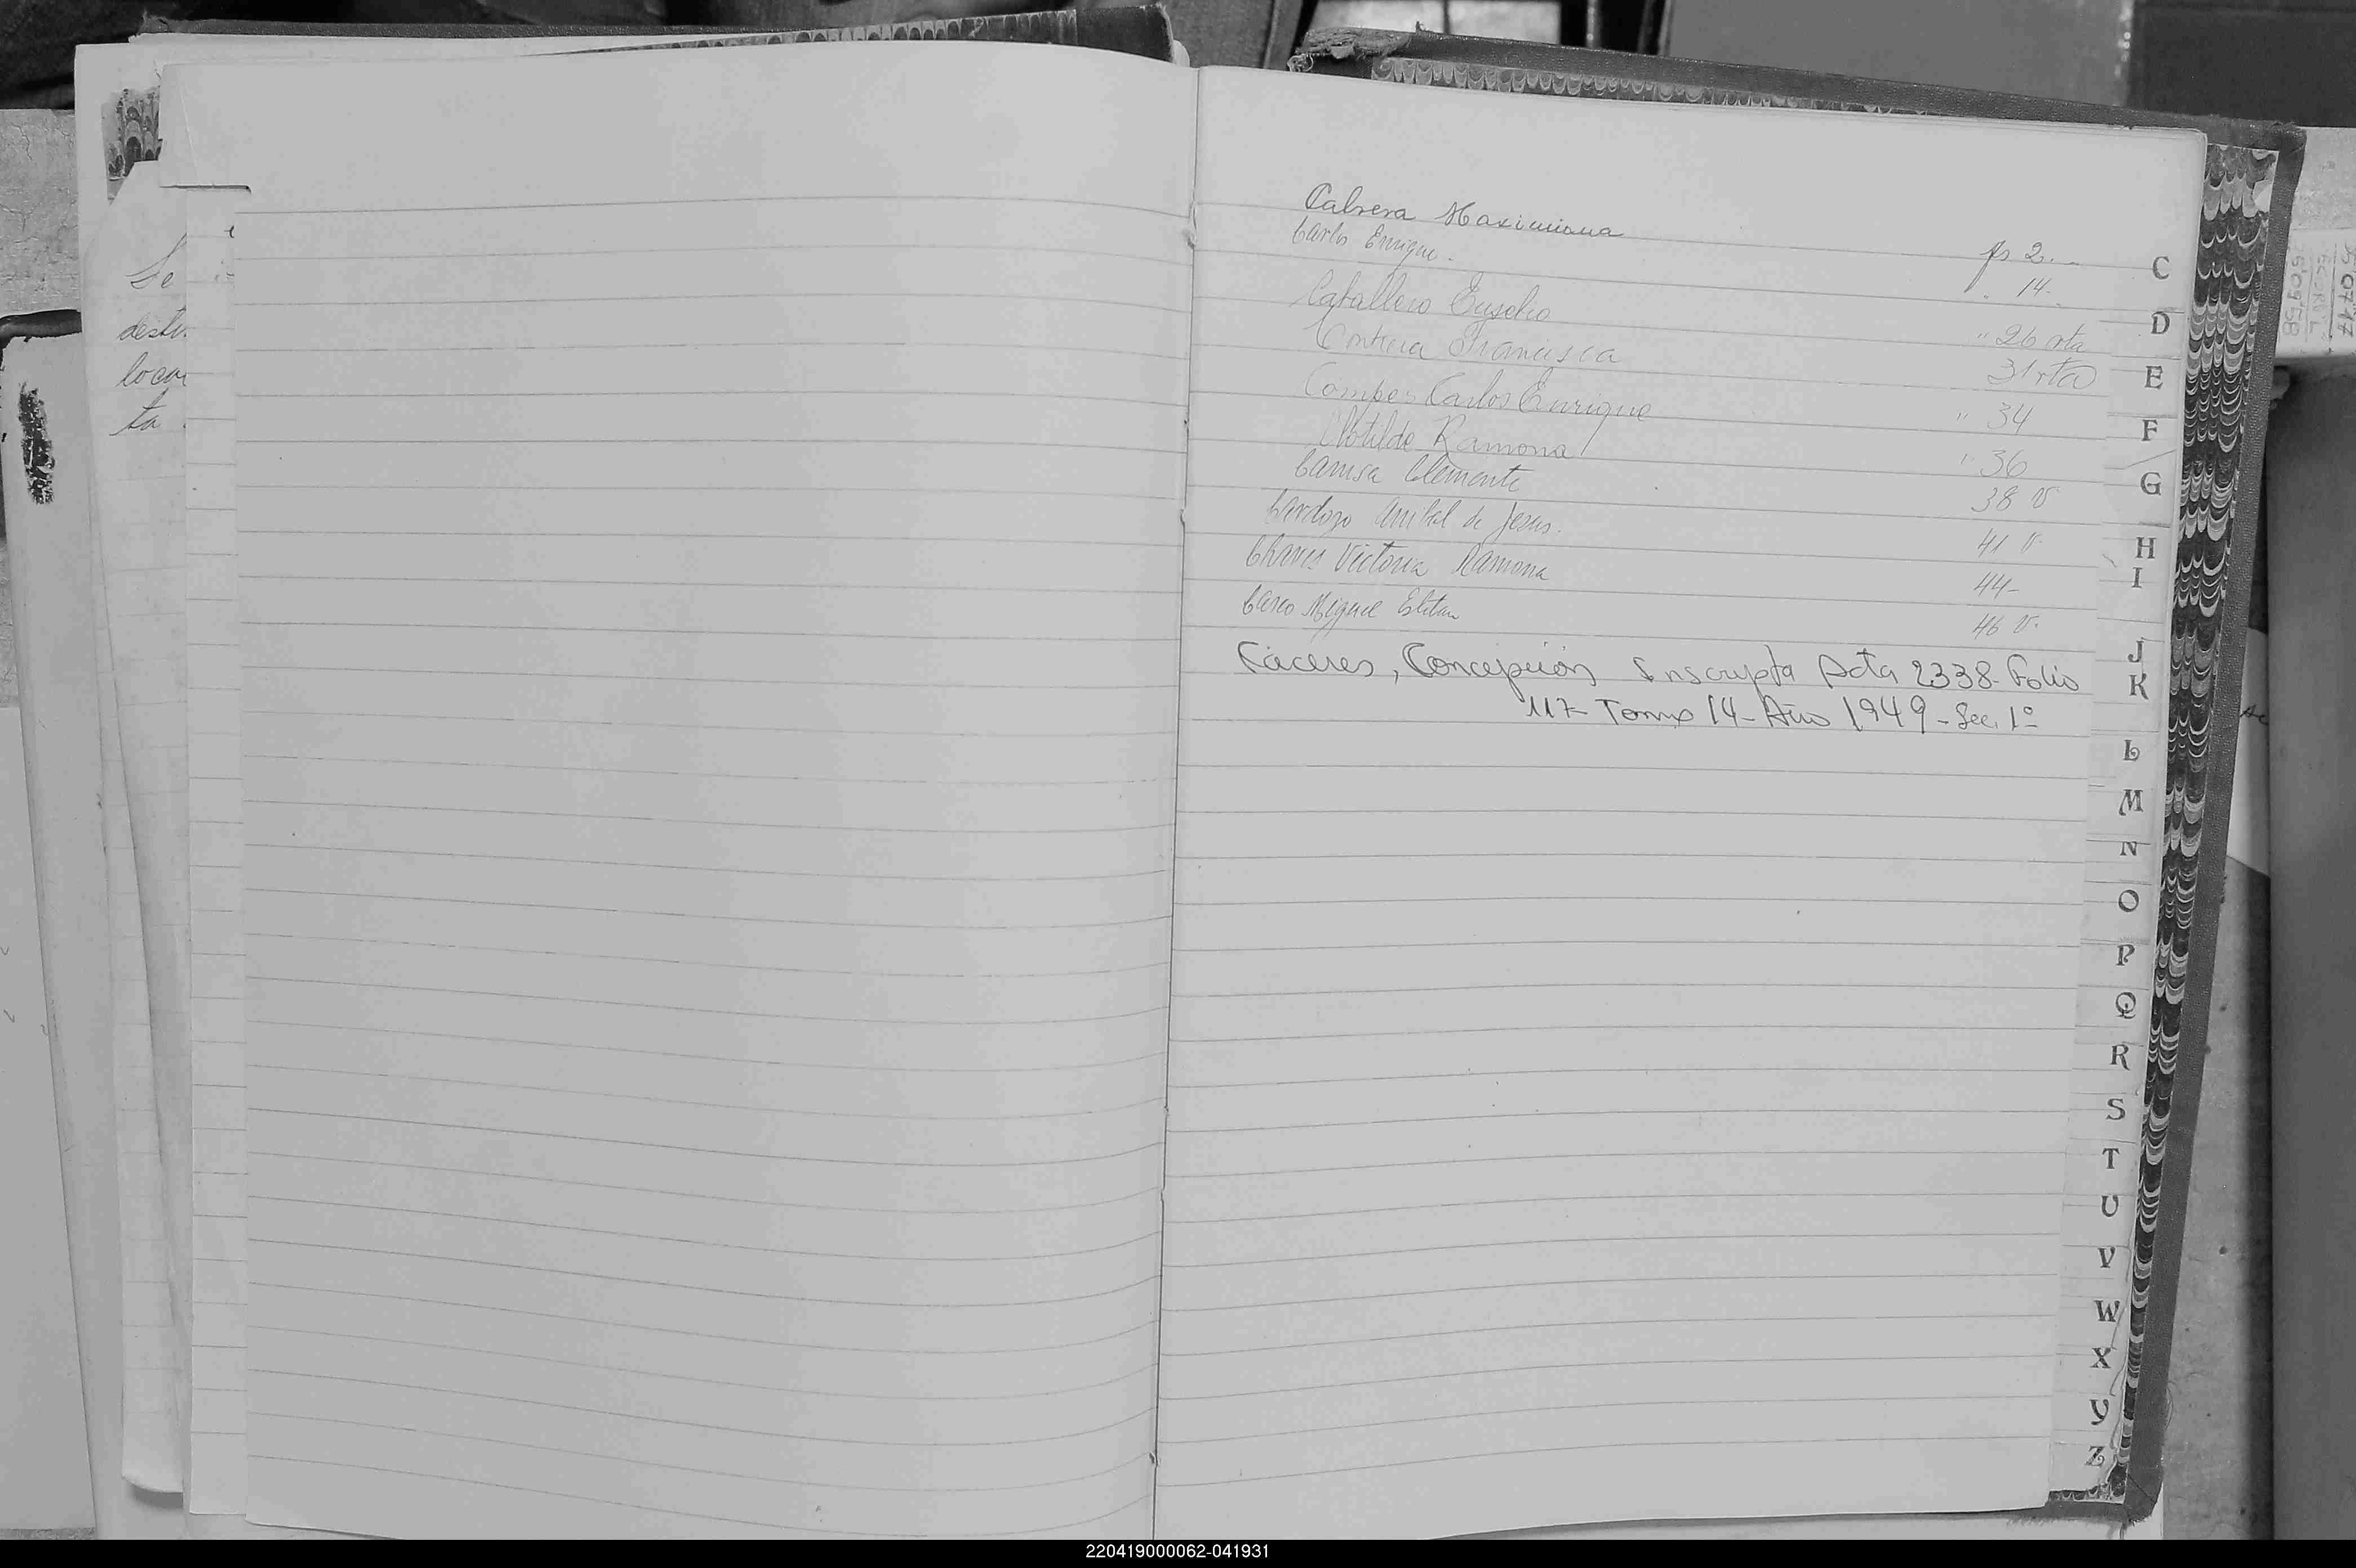 Se
desti
loca
ta
Cabrera Maximiana fs 2.-
Carlos Enrique. " 14.
Caballero Eusebio " 26 vta
Contrera Francisca 31 vta
Compes Carlos Enrique " 34
Clotilde Ramona " 36
Clemente 38 v
Cardozo Anibal de Jesus. 41 v.
Chaves Victoria Ramona 44-
Miguel 46 v.
Cáceres, Concepción Inscripta Acta 2338-Folio
117- Tomo 14- Año 1949- Sec. 1º
C
D
E
F
G
H
I
J
K
L
M
N
O
P
Q
R
S
T
U
V
W
X
Y
Z
220419000062-041931